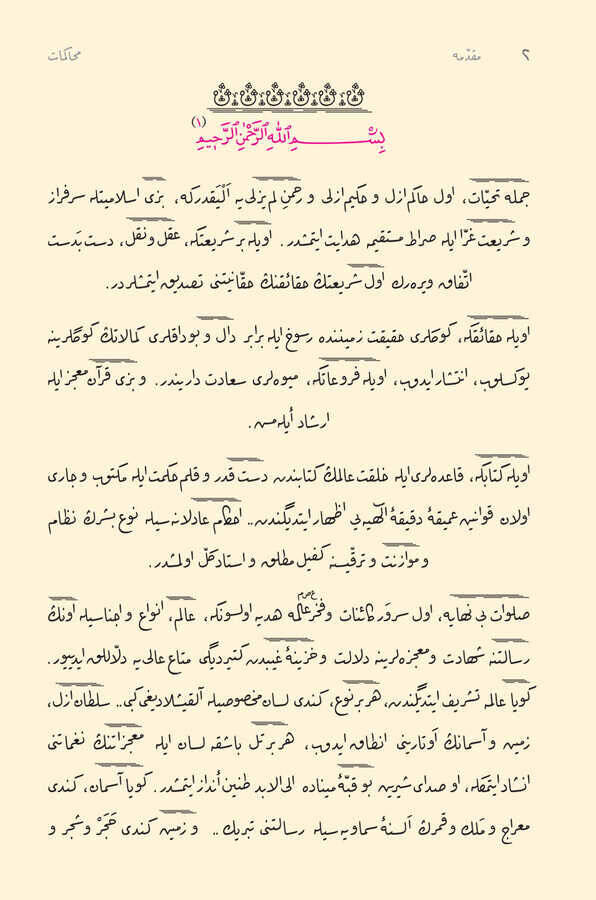 ٢ مقدّمه محاكمات
بِسْمِ اللّٰهِ الرَّحْمٰنِ الرَّحِيمِ (١)
جمله تحيّات، اول حاكم ازل و حكيم ازلى و رحمنِ لم يزلى يه اَلْيَقدركه، بزى اسلاميتله سرفراز
و شريعت غرّا ايله صراط مستقيمه هدايت ايتمشدر. اويله بر شريعتكه، عقل و نقل، دست بَدست
اتّفاق ويره‌رك اول شريعتڭ حقائقنڭ حقّانيتنى تصديق ايتمشلردر.
اويله حقائقكه، كوكلرى حقيقت زميننده رسوخ ايله برابر دال و بوداقلرى كمالاتڭ كوكلرينه
يوكسلوب، انتشار ايدوب، اويله فروعاتكه، ميوه‌لرى سعادت داريندر. و بزى قرآن معجز ايله
ارشاد أيله‌مس.
اويله كتابكه، قاعده‌لرى ايله خلقت عالمڭ كتابندن دست قدر و قلم حكمت ايله مكتوب و جارى
اولان قوانين عميقهٔ دقيقهٔ الٓهيه‌يى اظهار ايتديگندن.. احكام عادلانه‌سيله نوع بشرڭ نظام
و موازنت و ترقّيسنه كفيل مطلق و استاد كلّ اولمشدر.
صلوات بى نهايه، اول سرور كائنات و فخر عالمه عصم هديه اولسونكه، عالم، انواع و اجناسيله اونڭ
رسالتنه شهادت و معجزه‌لرينه دلالت و خزينهٔ غيبدن كتيرديگى متاع عالى يه دلّاللق ايدييور.
كويا عالمه تشريف ايتديگندن، هر بر نوع، كندى لسان مخصوصيله آلقيشلاديغى كبى.. سلطان ازل،
زمين و آسمانڭ أوتارينى انطاق ايدوب، هر بر تل باشقه لسان ايله معجزاتنڭ نغماتنى
انشاد ايتمكله، او صداى شيرين بو قبّهٔ ميناده الى الابد طنين أنداز ايتمشدر. كويا آسمان، كندى
معراج و مَلك و قمرڭ اَلسنهٔ سماويه‌سيله رسالتنى تبريك.. و زمين كندى حَجَرْ و شجر و